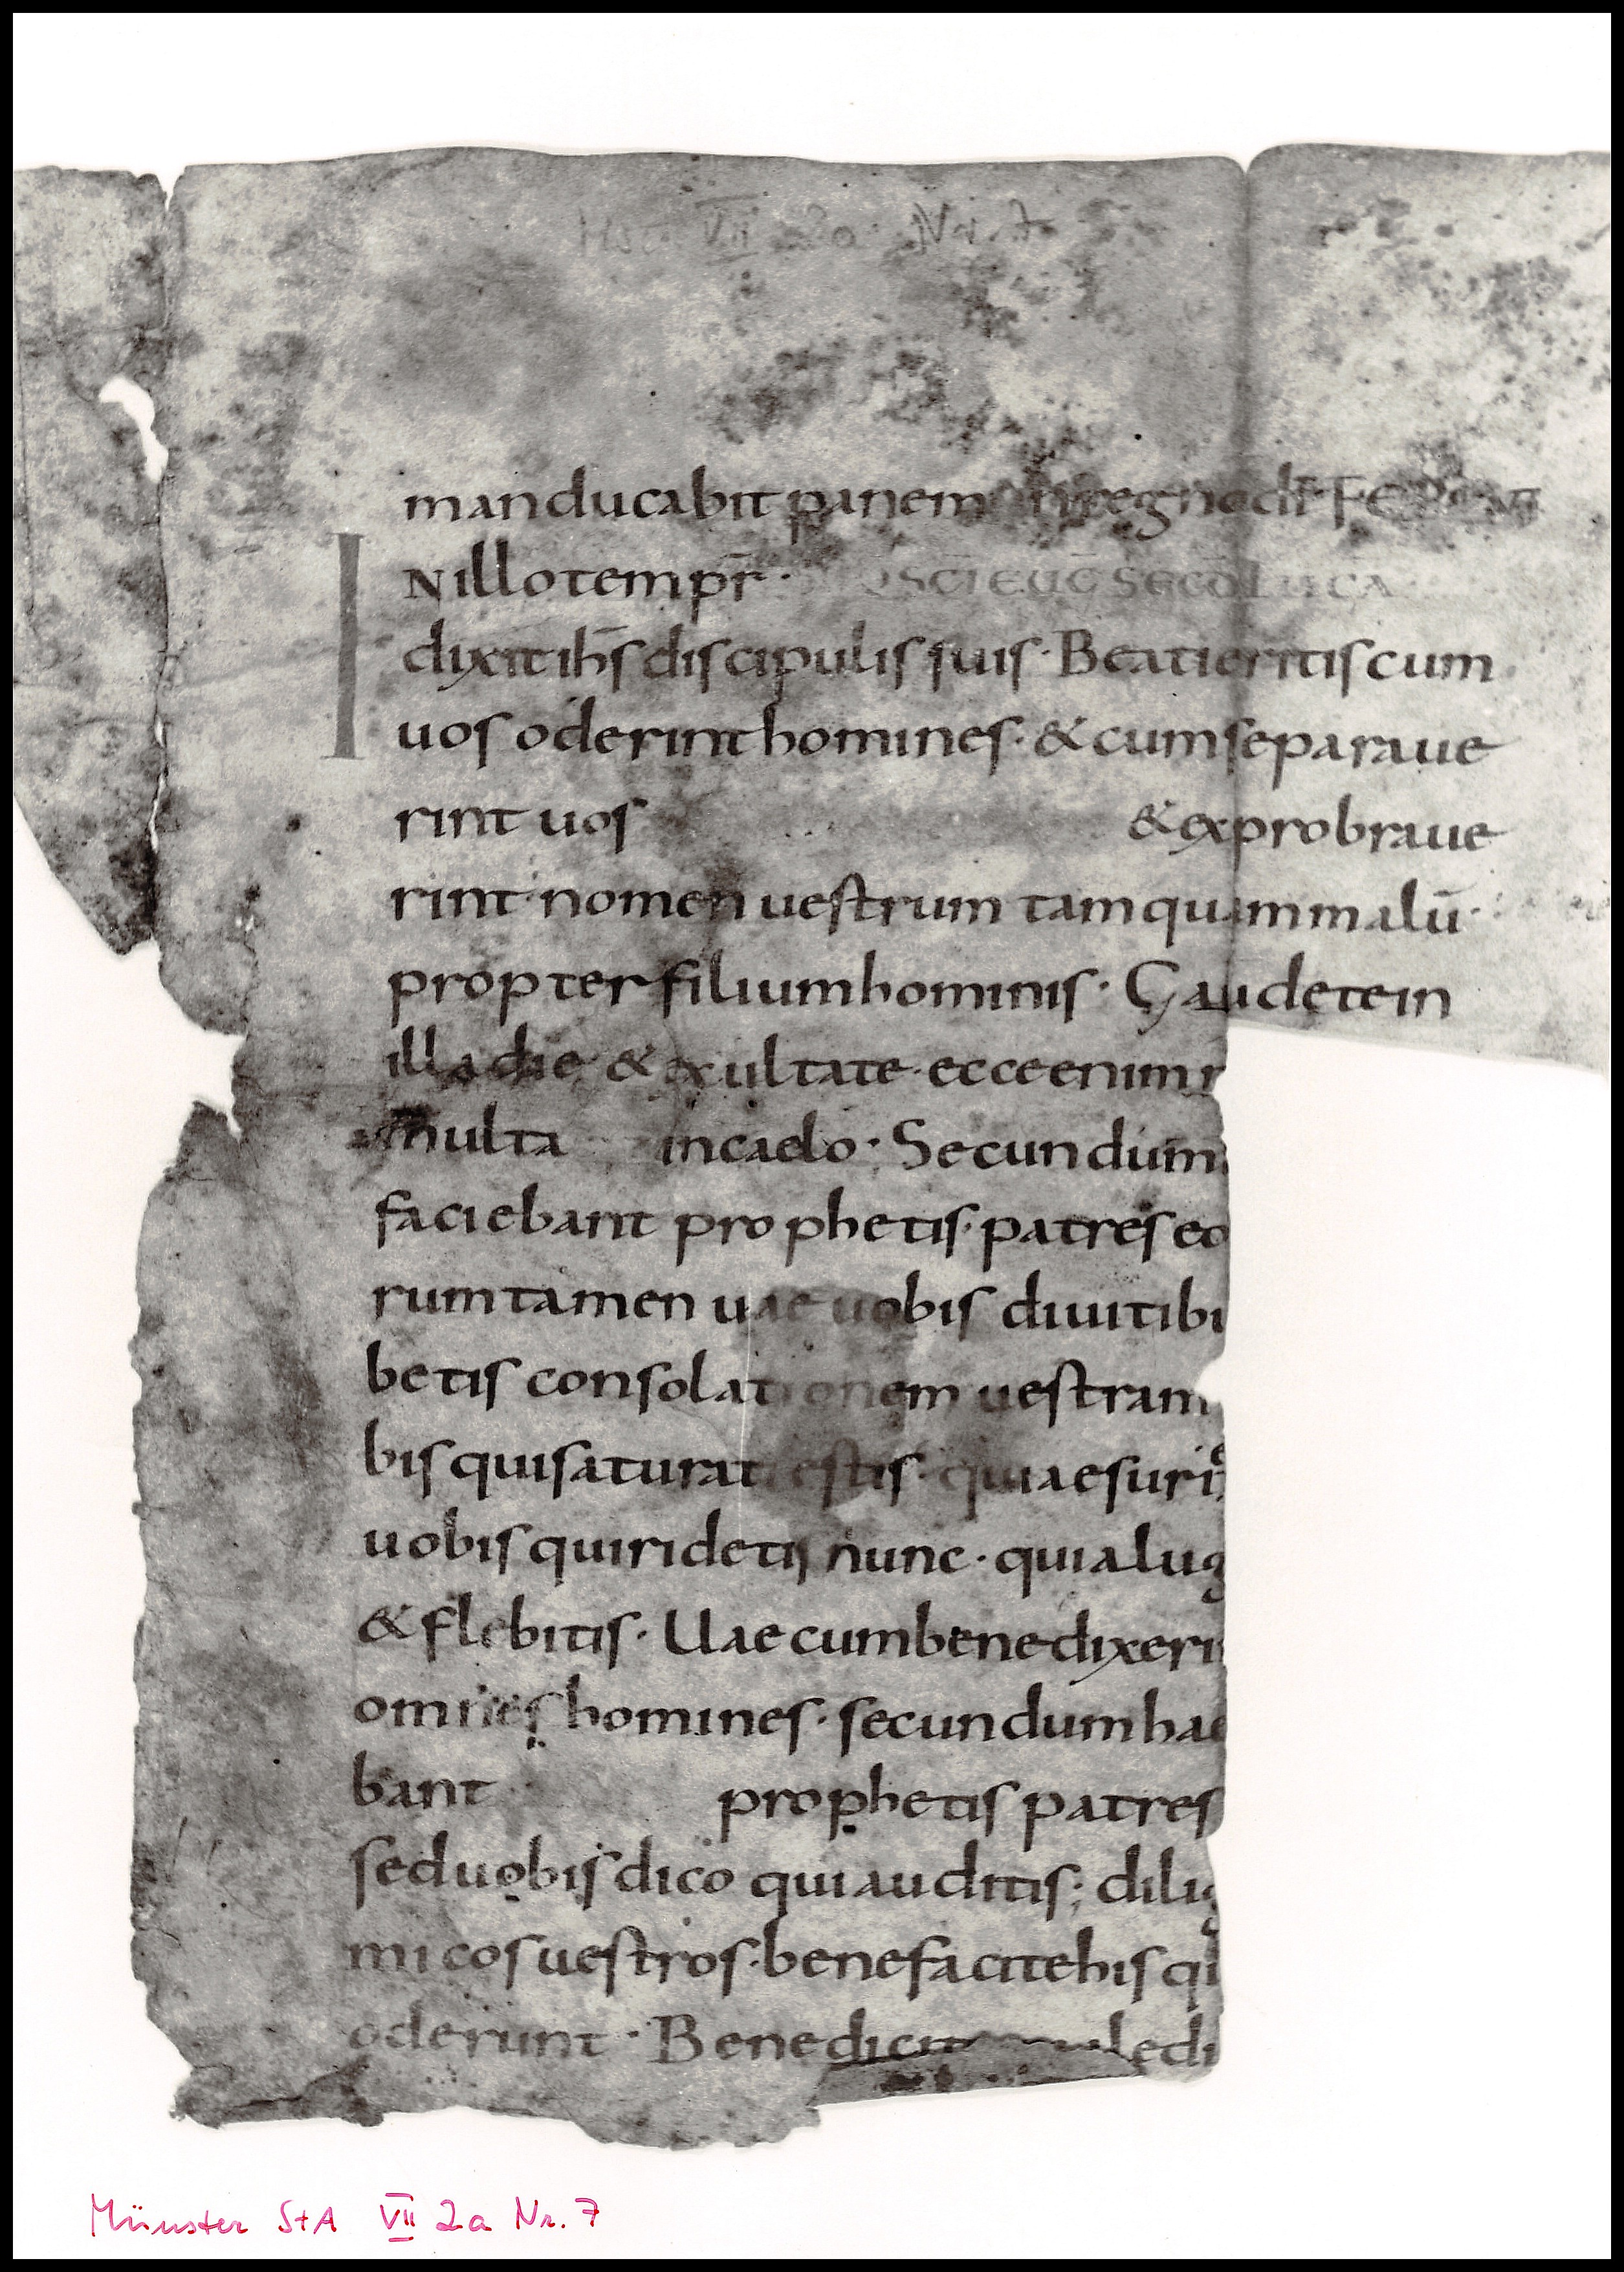 manducabit panem in regno dī FER
IN illo tempr̄. SCI EUG SECD LUCA
dixit ih̄s discipulis suis. Beati eritis cum
uos oderint homines. & cum separaue
rint uos & exprobraue
rint nomen uestrum tamquam malū.
propter filium hominis. Gaudete in
illa die & exultate. ecce enim
multa in caelo. Secundum
faciebant prophetis. patres eo
rum tamen uae uobis diuitibi
betis consolationem uestram
bis qui saturati estis. quia esuri
uobis qui ridetis nunc. quia lug
& flebitis. Uae cum benedixeri
omnes homines. secundum hae
bant prophetis patres
sed uobis dico qui auditis; dilig
micos uestros. benefacite his qu
oderunt. Benedicite maledi
Münster StA VII 2a Nr. 7